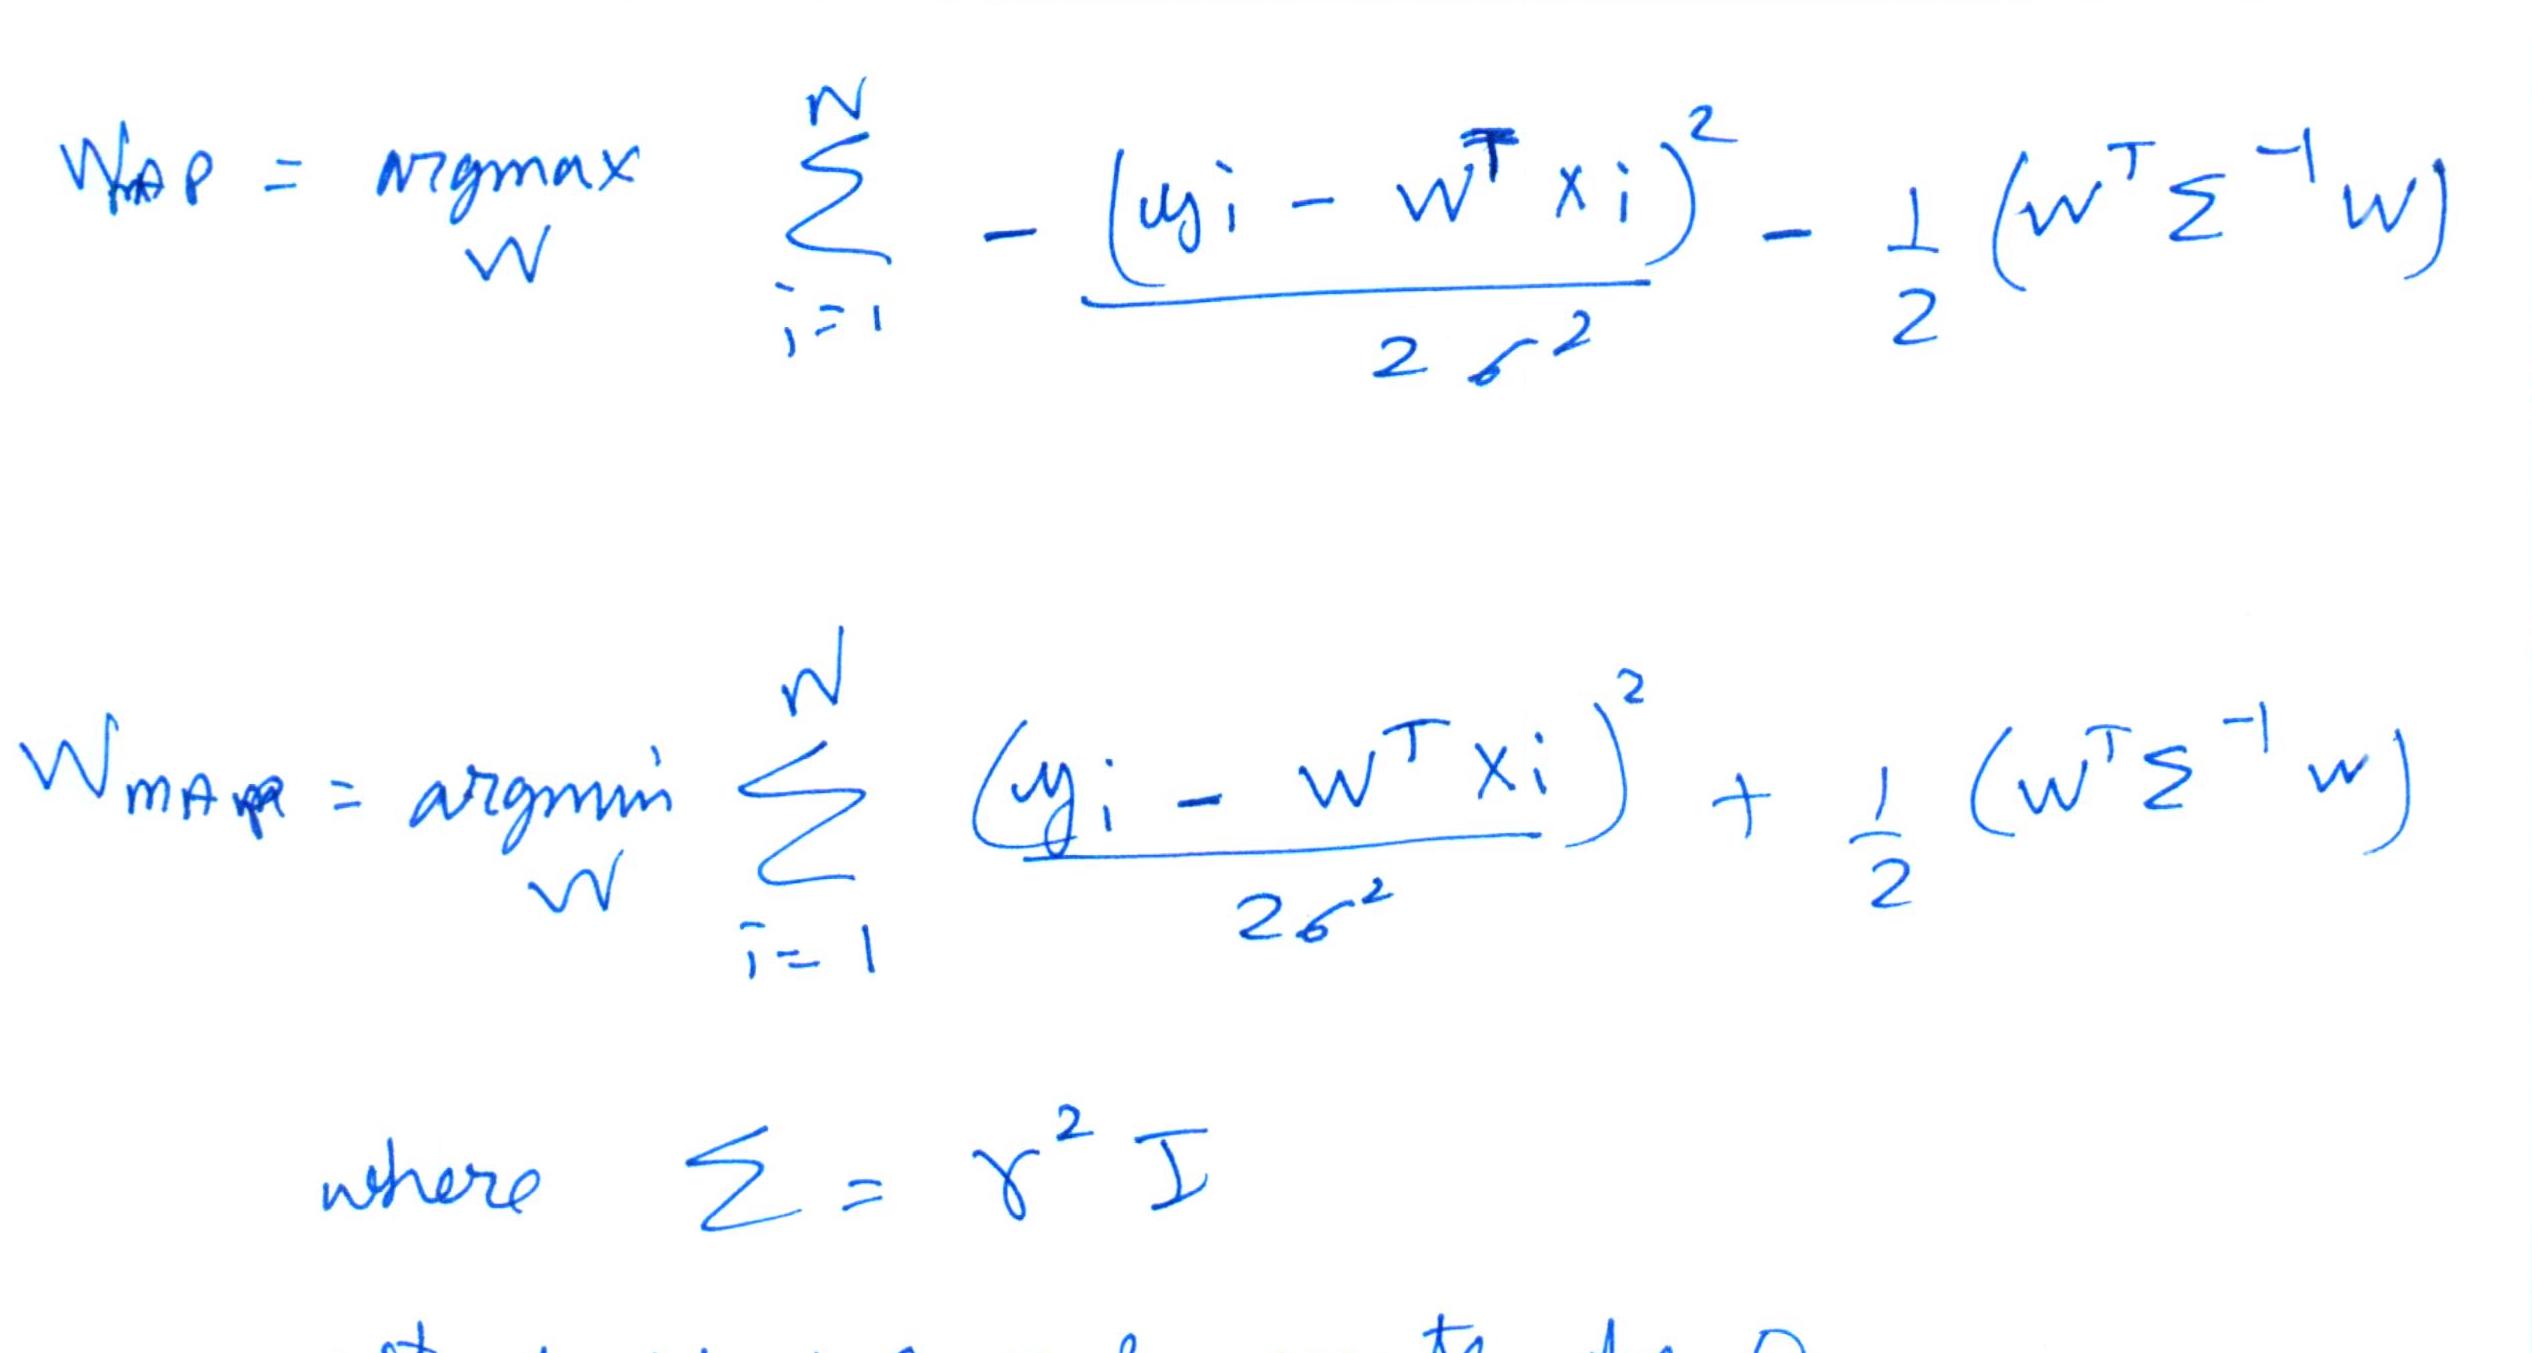 W_MAP = argmax_W Σ_{i=1}^{N} - (yi - W^T xi)^2 / 2σ^2 - 1/2 (W^T Σ^{-1} W)
W_MAP = argmin_W Σ_{i=1}^{N} (yi - W^T xi)^2 / 2σ^2 + 1/2 (W^T Σ^{-1} W)
where Σ = γ^2 I